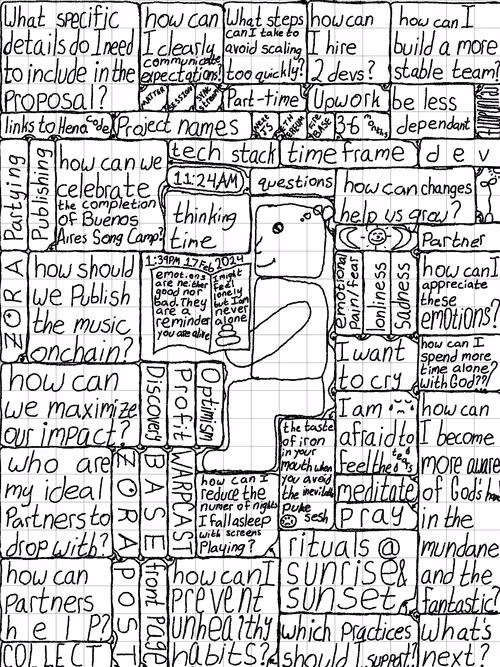 What specific
details do I need
to include in the
Proposal?
how can
I clearly
communicate
expectations?
What steps
can I take to
avoid scaling
too quickly?
how can
I hire
2 devs?
how can I
build a more
stable team?
Part-time
Upwork
be less
dependant
links to Hena Code
Project names
3-6 months
tech stack
time frame
dev
Partying
Publishing
how can we
celebrate
the completion
of Buenos
Aires Song Camp?
11:24AM
questions
thinking
time
how can changes
help us grow?
Partner
ZORA
how should
we Publish
the music
onchain?
1:39PM 17 Feb 2024
emotions
are neither
good nor
bad. They
are a
reminder
you are alive
I might
feel
lonely
but I am
never
alone
emotional
pain/fear
lonliness
sadness
how can I
appreciate
these
emotions?
I want
to cry
how can I
spend more
time alone?
with God??!
how can
we maximize
our impact?
Discovery
Profit
Optimism
I am
afraid to
feel the
the taste
of iron
in your
mouth when
you avoid
the inevitable
puke
sesh
how can
I become
more aware
of God's
in the
mundane
and the
fantastic?
who are
my ideal
Partners to
drop with?
ZORA
BASE
WARPCAST
how can I
reduce the
numer of nights
I fall asleep
with screens
Playing?
meditate
pray
rituals @
sunrise &
sunset
how can
Partners
help?
POST
front Page
how can I
prevent
unhealthy
habits?
which Practices
should I support?
What's
next?
COLLECT